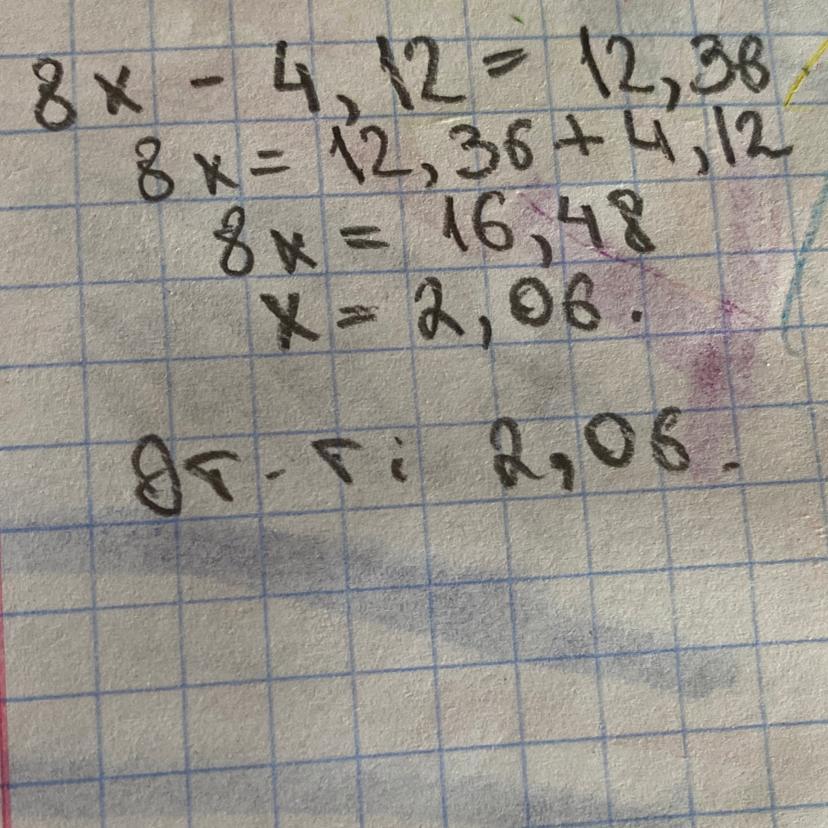 8x - 4,12 = 12,36
8x = 12,36 + 4,12
8x = 16,48
x = 2,06.
От-т: 2,06.